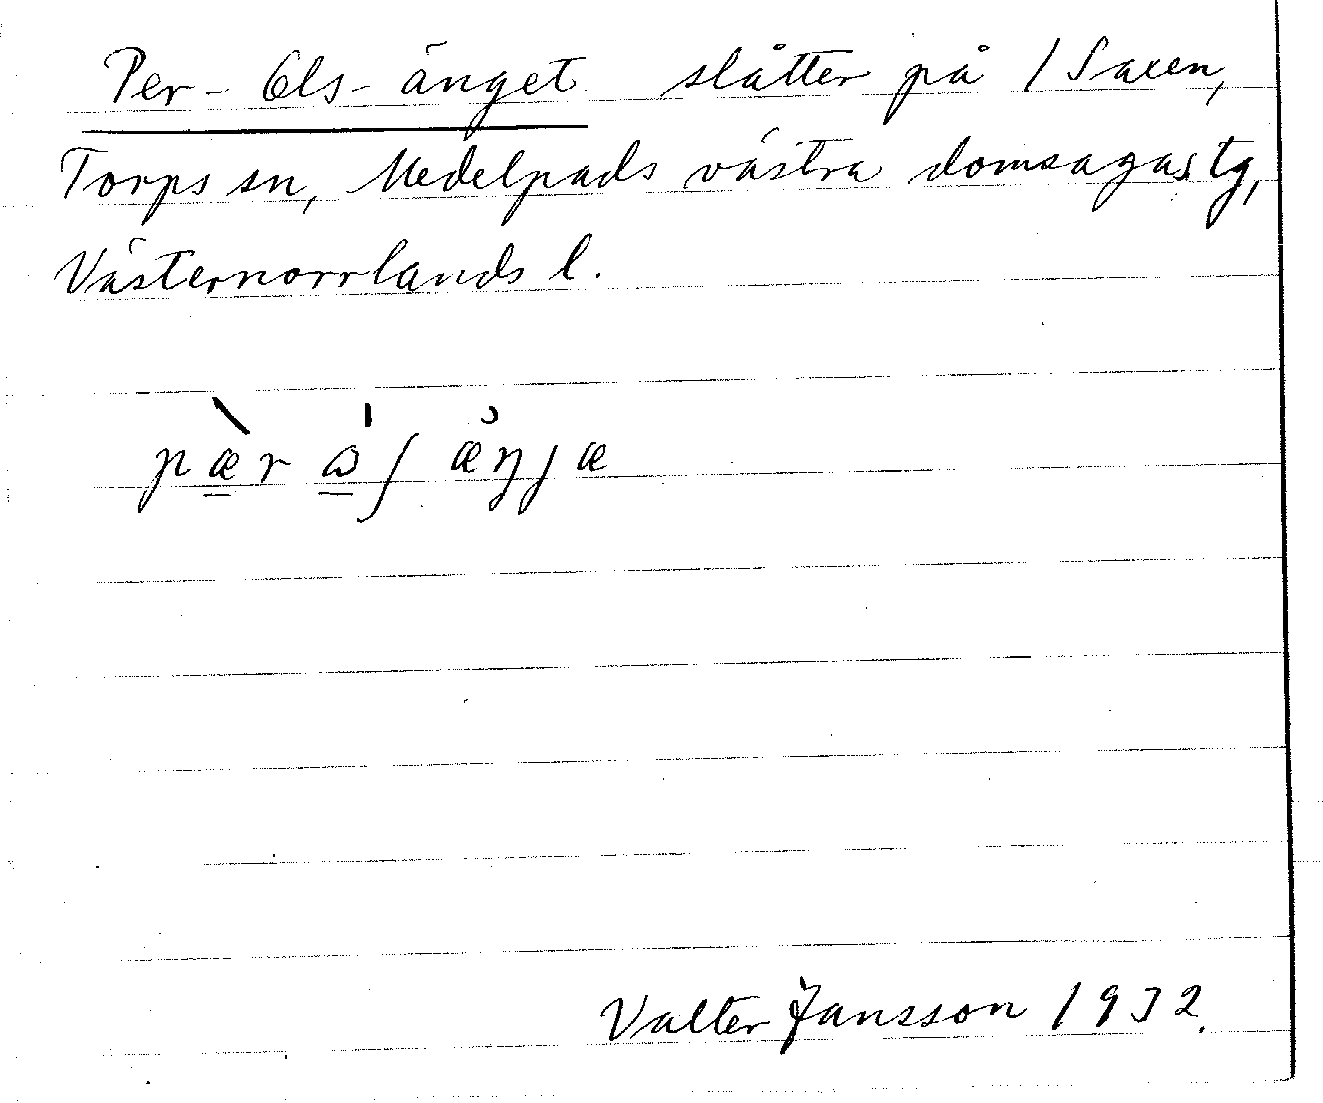 Per-Ols-änget slåtter på 1 Saxen,
Torps sn, Medelpads västra domsagas tg,
Västernorrlands l.
pæ̀r ɷ̍ʃ æŋʃæ
Valter Jansson 1932.